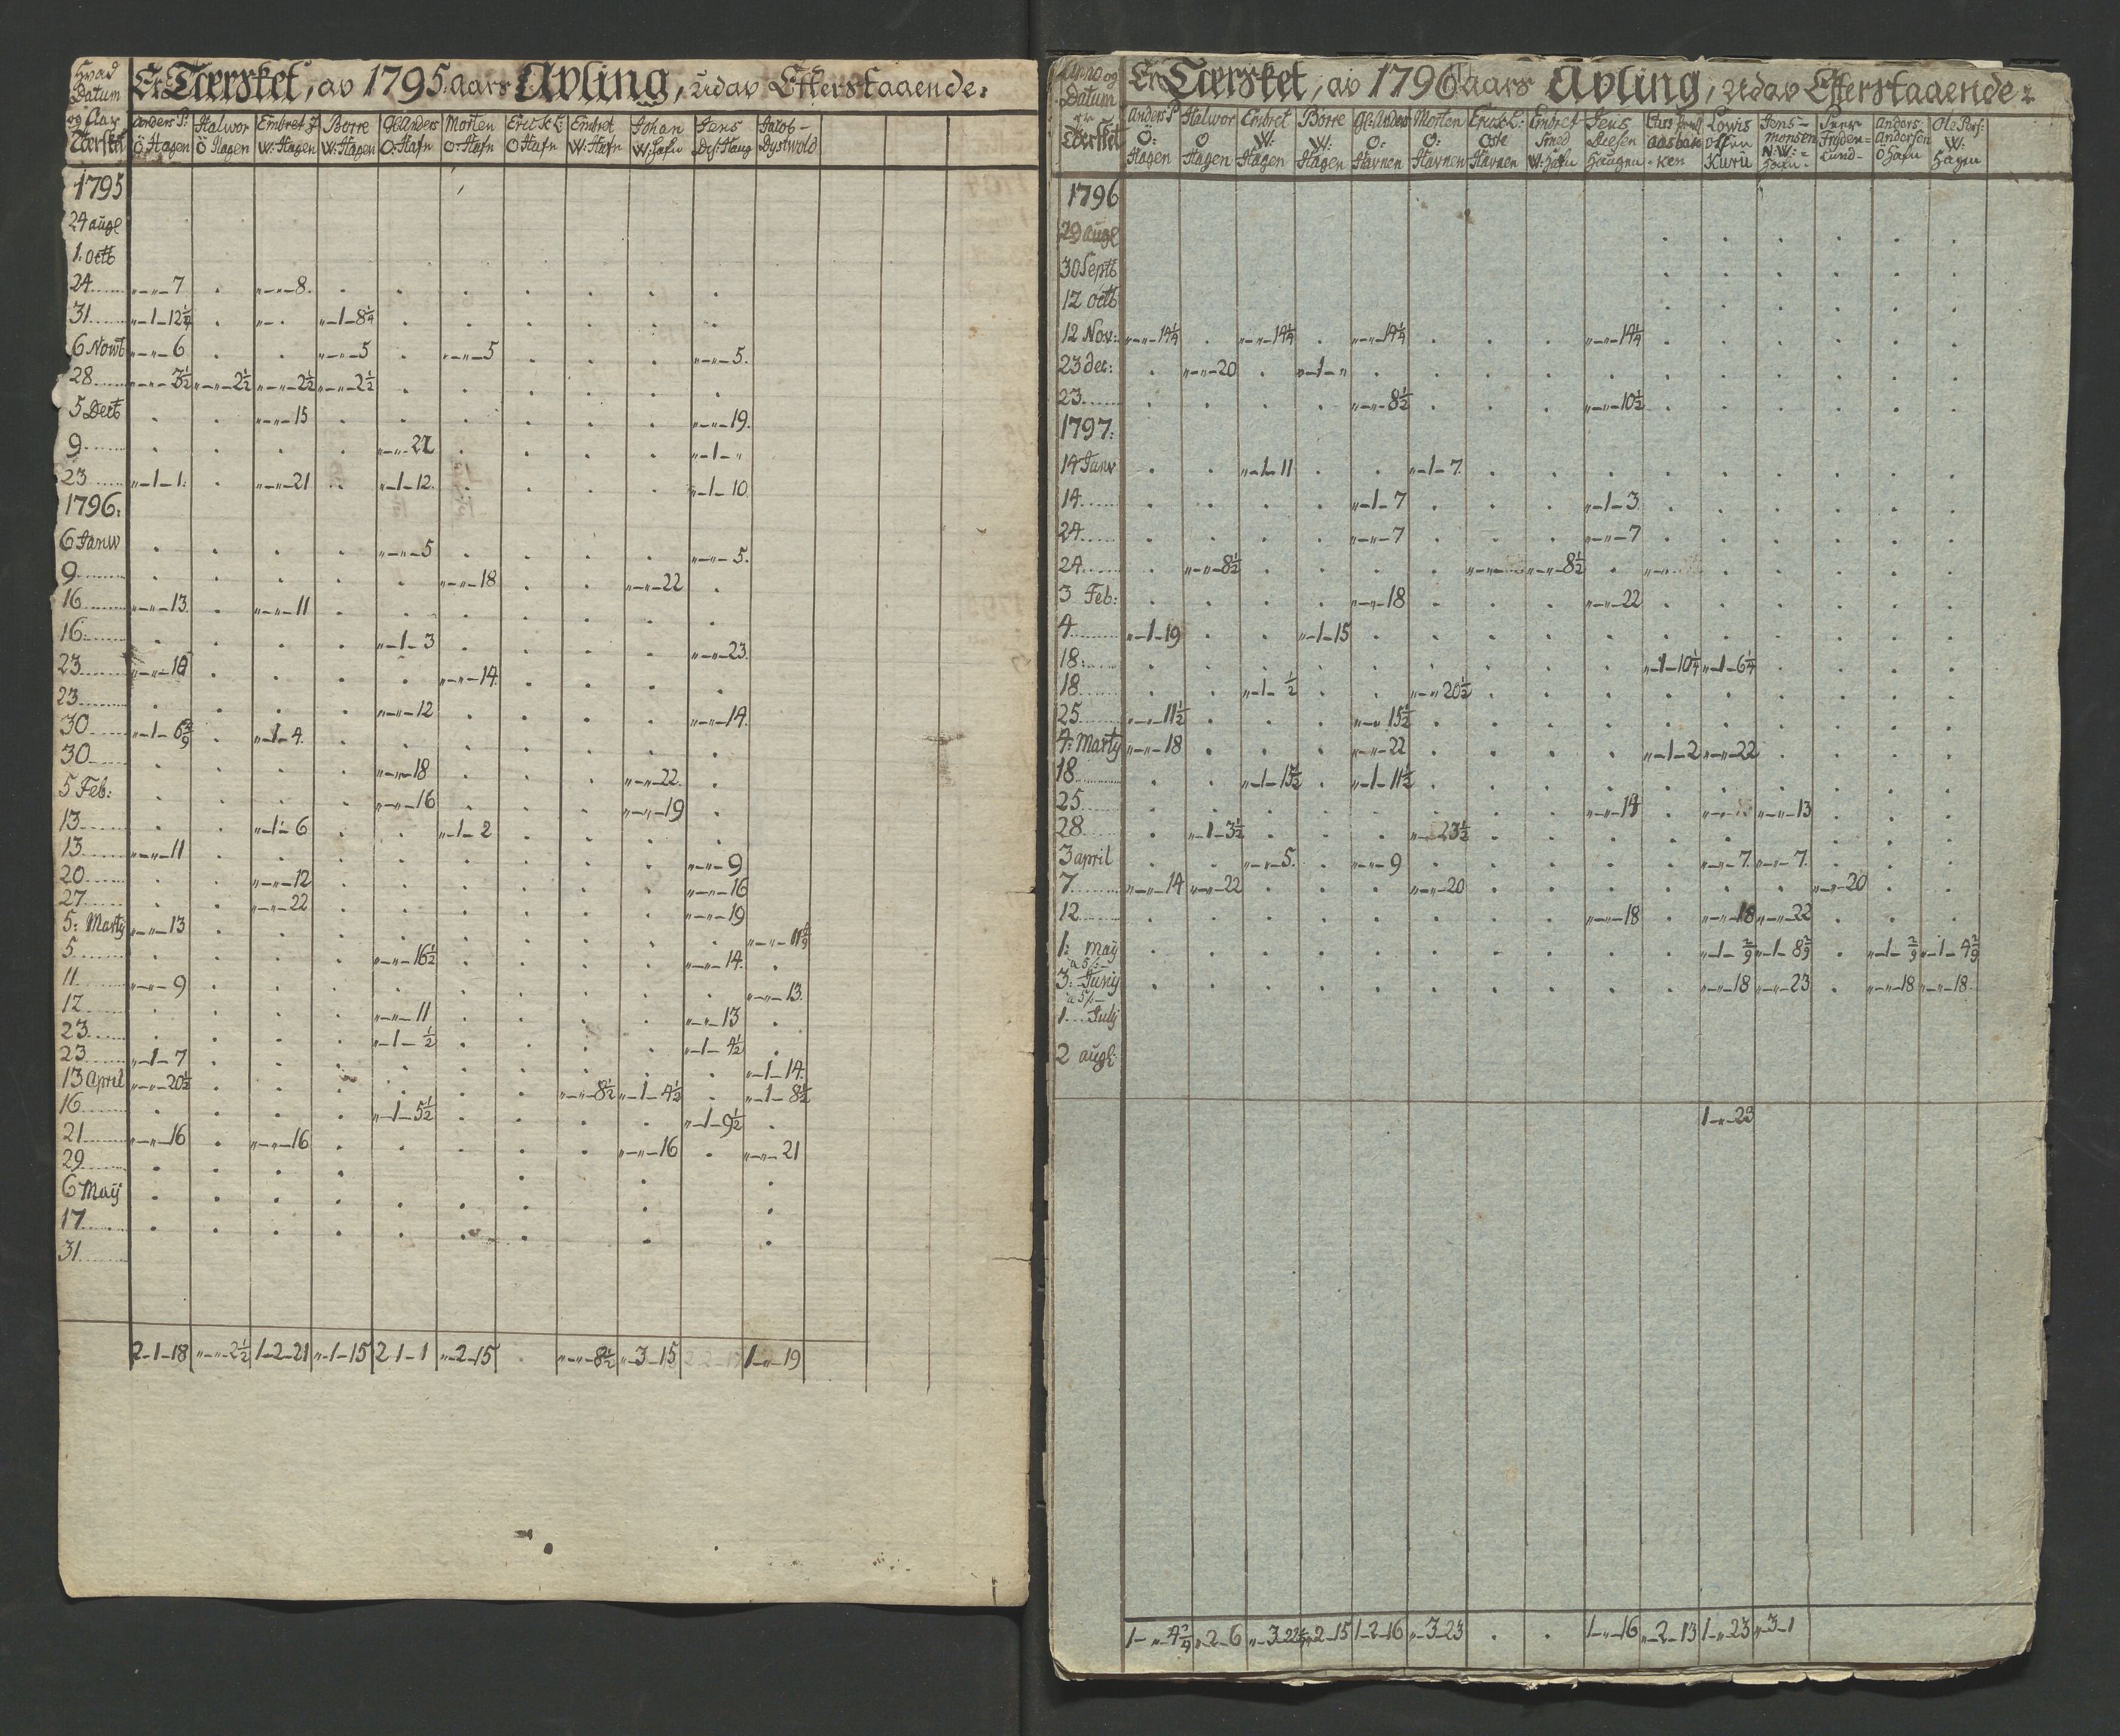 Hvad Datum og Aar Tærsket
Er Tærsket, av 1795 aars Avling, udav Efterstaaende:
Anders P: Ö Hagen | Halvor Ö Hagen | Embret J W: Hagen | Borre W: Hagen | Gl: Anders O: Hafn | Morten O: Hafn | Erick E O Hafn | Embret W: Hafn | Johan W: Hafn | Jens Dys: Haug | Jacob Dystvold
1795
24 augl
1. octb
24 „-„-7 . „-„-8.
31 „-1-12¼ . „- . „-1-8¼
6 Novb „-„-6 . . „-„-5 . „-„-5 „-„-5.
28 „-„-3½ „-„-2½ „-„-2½ „-„-2½
5 Decb „-„-15 „-„-19.
9 „-„-22 „-1-„
23 „-1-1. „-„-21 „-1-12. „-1-10
1796:
6 Janv „-„-5 „-„-5.
9 „-„-18 „-„-22
16 „-„-13. „-„-11
16 „-1-3 „-„-23.
23 „-„-18 „-„-14.
23 „-„-12 „-„-14.
30 „-1-6 „-1-4.
30 „-„-18 „-„-22.
5 Feb: „-„-16 „-„-19
13 „-1-6 „-1-2
13 „-„-11 „-„-9
20 „-„-12 „-„-16
27 „-„-22 „-„-19
5: Marty „-„-13 „-„-11
5 „-„-16½ „-„-14.
11 „-„-9 „-„-13.
12 „-„-11 „-„-13
23 „-1-½ „-1-4½
23 „-1-7 „-1-14.
13 April „-„-20½ „-„-8½ „-1-4½ „-1-8½
16 „-1-5½ „-1-9½
21 „-„-16 „-„-16 „-„-16 „-„-21
29
6 Maÿ
17
31
2-1-18 „-„-2½ 1-2-21 „-1-15 2 1-1 „-2-15 . „-„-8½ „-3-15 1-„-19
Datum Tærsket
Er Tærsket, av 1796 aars Avling, udav Efterstaaende:
Anders P O: Hagen | Halvor O Hagen | Embret W: Hagen | Borre W: Hagen | Gl: Anders O: Havnen | Morten O: Havnen | Erick E: Oste Havnen | Embret Smed W: Hafn | Jens Haugen | Aasbakken | Lowis Olsen Kurü | Jens Monsen N: W: Hafn | Frydenlund | Anders Andersen Ö Hafn | Ole Pers: W: Hagen
1796
29 augl
30 Septb
12 octb
12 Nov: „-„-14¼ „-„-14¼ „-„-14¼ „-„-14¼
23 dec: „-„-20 „-1-„
23 „-„-8½ „-„-10½
1797:
14 Janv „-1-11 „-1-7.
14 „-1-7 „-1-3.
24 „-„-7 „-„-7
24 „-„-8½ „-„-8½
3 Feb: „-„-18 „-„-22
4 „-1-19 „-1-15
18: „-1-10¼ „-1-6¼
18 „-1-½ „-„-20½
25 „-„-11½ „-„-15½
4: Marty „-„-18 „-„-22 „-1-2 „-„-22
18 „-1-15½ „-1-11½
25 „-„-14 „-„-13
28 „-1-3½ „-„-23½
3 april „-„-5. „-„-9 „-„-7. „-„-7.
7 „-„-14 „-„-22 „-„-20 „-„-20
12 „-„-18 „-„-18 „-„-22
1: maÿ „-1-2/9 „-1-8 2/9 „-1-2/9 „-1-4 2/9
a 5/:-
3: Junij „-„-18 „-„-23 „-„-18 „-„-18
a 5/:-
1. July
2 augl:
1-„-23
1-„-4 2/9 „-2-6 „-3-22 „-2-15 1-2-16 „-3-23 . . 1-„-16 „-2-13 1-„-23 „-3-1